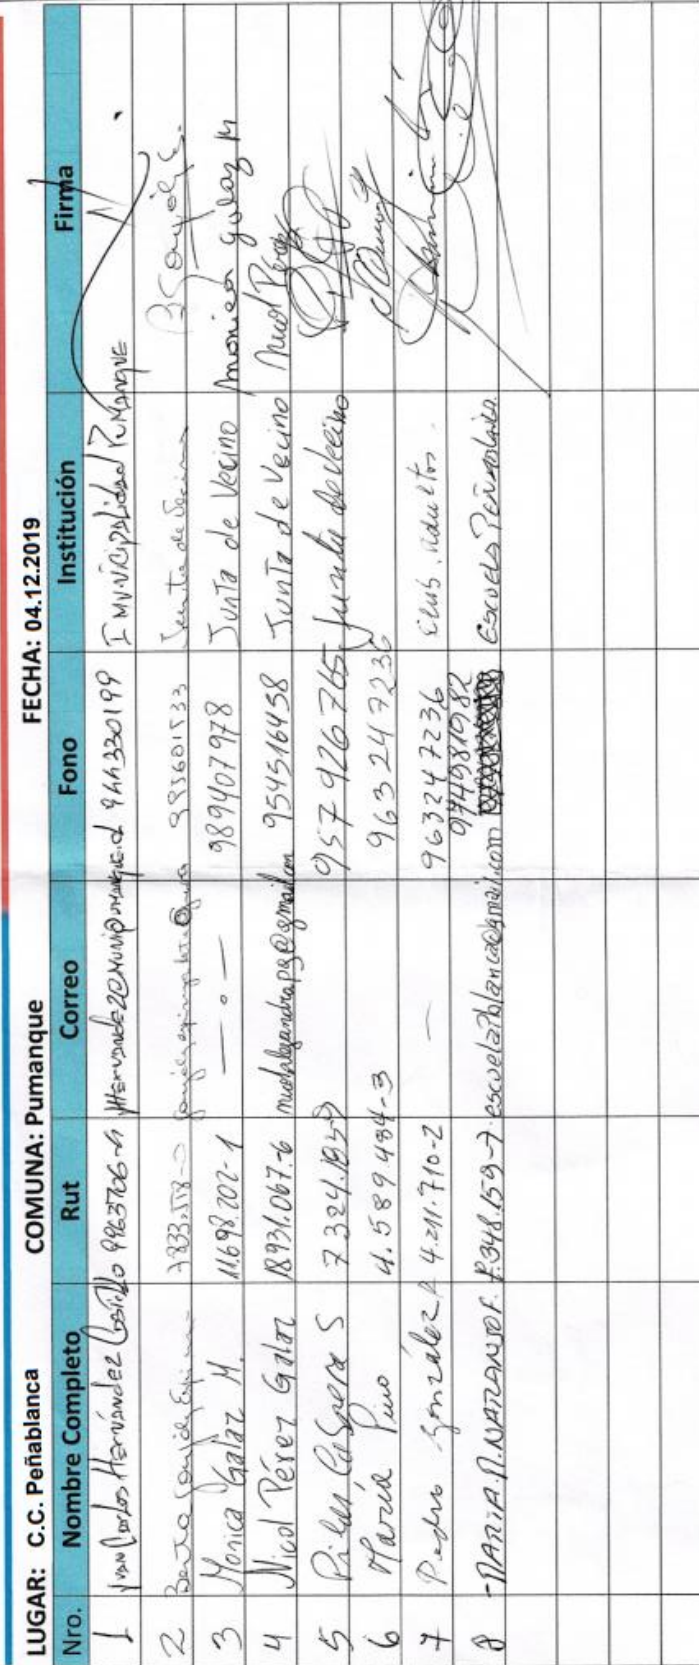 LUGAR: C.C. Peñablanca COMUNA: Pumanque FECHA: 04.12.2019
Nro. Nombre Completo Rut Correo Fono Institución Firma
1 Juan Carlos Hernández 9963706-4 944330199 I MUNICIPALIDAD PUMANQUE
2 Berta 993601533 Junta de Vecino
3 Monica Galaz M. 11.698.202-1 — . — 989407978 Junta de Vecino monica galaz M
4 Nicol Pérez Galaz 18931.067-6 nicolalejandrapg@gmail.com 954516458 Junta de Vecino Nicol Pérez
5 Pilar S 957926765 Junta de Vecino
6 María Pino 4.589.484-3 963247236
7 Pedro González 4.211.710-2 — 963247236 Club. Adultos.
8 - MARTA. NARANJO F. 7.348.159-7. escuelapblanca@gmail.com 974981082 Escuela Peñablanca.